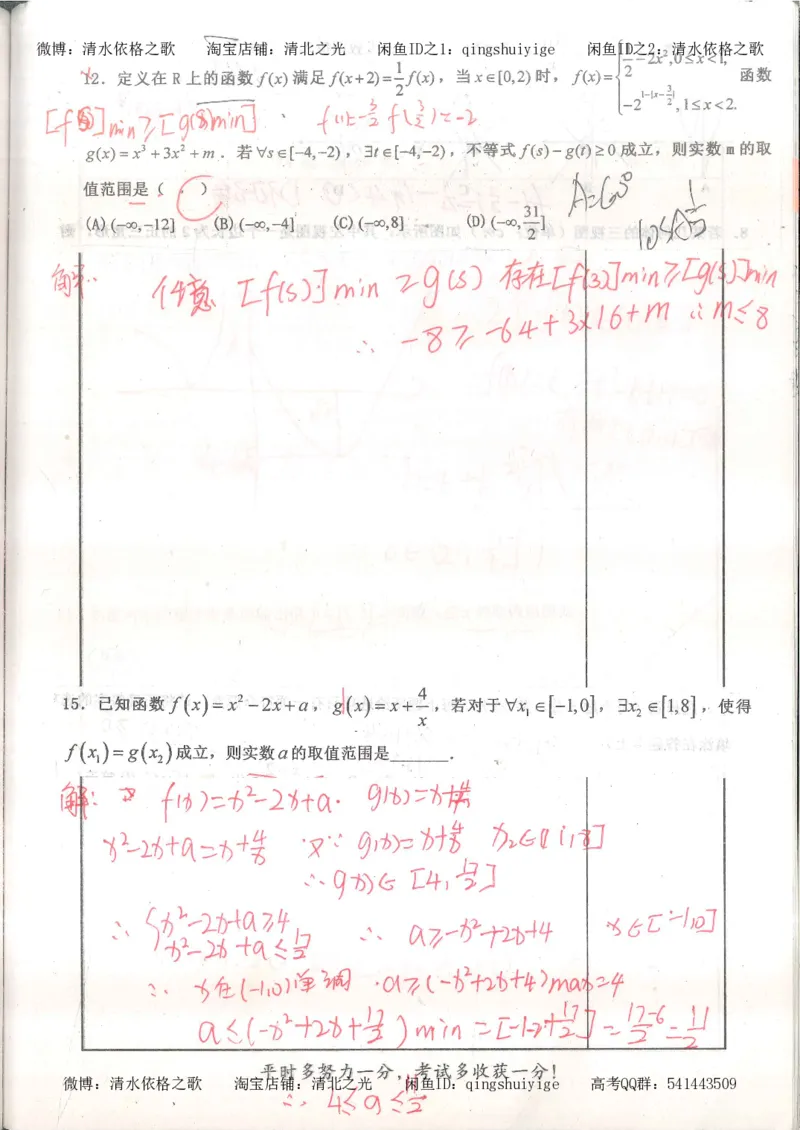 微博：清水依格之歌 淘宝店铺：清北之光 闲鱼ID之1：qingshuiyige 闲鱼ID之2：清水依格之歌
12．定义在 R 上的函数 f(x) 满足 f(x+2)=1/2 f(x)，当 x∈[0,2) 时， f(x)={1/2-2x²,0≤x<1, -2^(1-|x-3/2|),1≤x<2. 函数
[f(s)]min≥[g(s)min] . f(1)=-3/2 f(3/2)=-2
g(x)=x³+3x²+m．若∀s∈[-4,-2)，∃t∈[-4,-2)，不等式 f(s)-g(t)≥0 成立，则实数 m 的取
值范围是（ ）
A=60°
(A)(-∞,-12] (B)(-∞,-4] (C)(-∞,8] (D)(-∞,31/2]
解： 任意 [f(s)]min ≥g(s) 存在[f(s)]min≥[g(s)]min
∴ -8≥-64+3×16+m ∴m≤8
15．已知函数 f(x)=x²-2x+a，g(x)=x+4/x，若对于∀x₁∈[-1,0]，∃x₂∈[1,8]，使得
f(x₁)=g(x₂)成立，则实数a的取值范围是______．
解： f(x)=x²-2x+a. g(x)=x+4/x
x²-2x+a=x+4/x 又∵ g(x)=x+4/x x₂∈[1,8]
∴g(x)∈[4,17/2]
∴ {x²-2x+a≥4 ∴ a≥-x²+2x+4 x∈[-1,0]
x²-2x+a≤17/2
∴ x在(-1,0)单调 ·a≥(-x²+2x+4)max=4
a≤(-x²+2x+17/2)min=[-1-2+17/2]=17-6/2=11/2
平时多努力一分，考试多收获一分！
微博：清水依格之歌 淘宝店铺：清北之光 闲鱼ID：qingshuiyige 高考QQ群：541443509
∴ 4≤a≤11/2